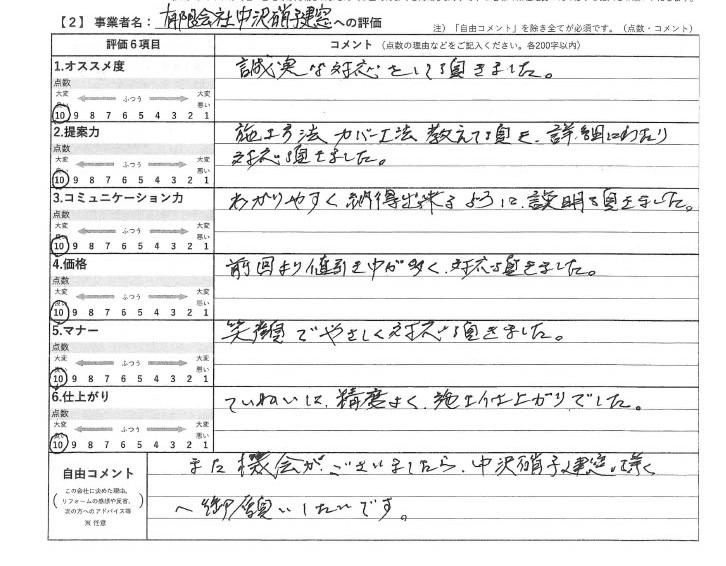 【2】事業者名： 有限会社中沢硝子建窓への評価
注）「自由コメント」を除き全てが必須です。（点数・コメント）
評価６項目
コメント （点数の理由などをご記入ください。各200字以内）
1.オススメ度
点数
大変良い ふつう 大変悪い
10 9 8 7 6 5 4 3 2 1
誠実な対応をして頂きました。
2.提案力
点数
大変良い ふつう 大変悪い
10 9 8 7 6 5 4 3 2 1
施工方法、カバー工法、教えて頂き、詳細にわたり
対応頂きました。
3.コミュニケーション力
点数
大変良い ふつう 大変悪い
10 9 8 7 6 5 4 3 2 1
わかりやすく納得出来るように、説明頂きました。
4.価格
点数
大変良い ふつう 大変悪い
10 9 8 7 6 5 4 3 2 1
前回より値引き巾が多く、対応頂きました。
5.マナー
点数
大変良い ふつう 大変悪い
10 9 8 7 6 5 4 3 2 1
笑顔でやさしく対応頂きました。
6.仕上がり
点数
大変良い ふつう 大変悪い
10 9 8 7 6 5 4 3 2 1
ていねいに、精度よく、施工仕上がりでした。
自由コメント
この会社に決めた理由、
リフォームの感想や反省、
次の方へのアドバイス等
※任意
また機会がございましたら、中沢硝子建窓様
へ御願いしたいです。